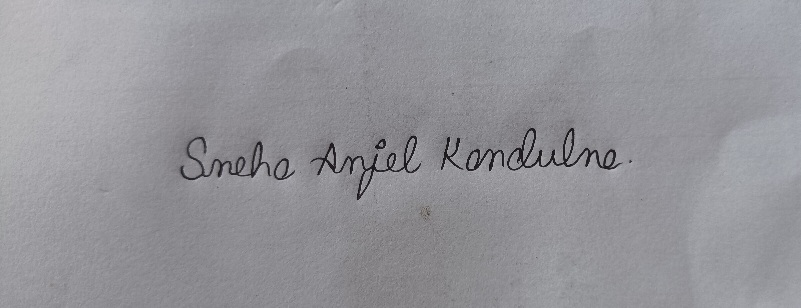 Sneha Anjel Kandulna.